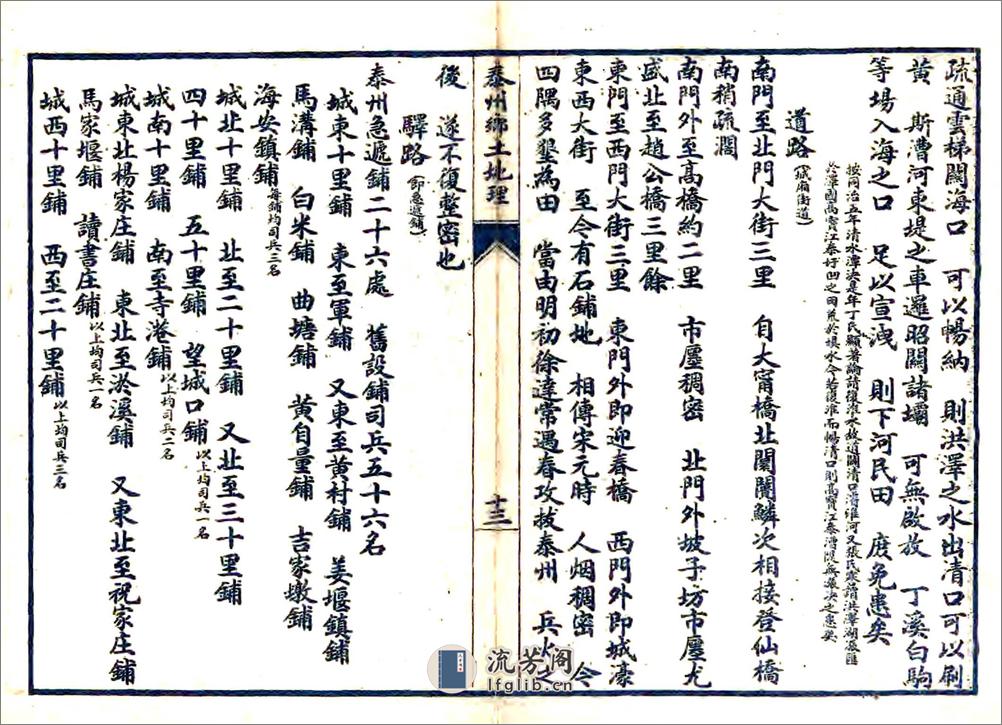 疏通雲梯關海口　可以暢納　則洪澤之水出清口可以刷
黃　斯漕河東堤之車邏昭關諸壩　可無啟放　丁溪白駒
等場入海之口　足以宣洩　則下河民田　庶免患矣
按同治五年清水潭決是年丁氏顯著論請復淮水故道闢清口濬淮河又張氏
於澤國而寶江泰圩凹之田荒於積水今若復淮而暢清口則高寶江泰漕隄無潰決之患矣
道路（城廂街道）
南門至北門大街三里　自大甯橋北闤闠鱗次相接登仙橋
南稍疏濶
南門外至高橋約二里　市廛稠密　北門外坡子坊市廛尤
盛北至趙公橋三里餘
東門至西門大街三里　東門外即迎春橋　西門外即城濠
東西大街　至今有石鋪地　相傳宋元時　人烟稠密　今
四隅多墾為田　當由明初徐達常遇春攻拔泰州　兵火之
泰州鄉土地理
十三
後　遂不復整密也
驛路（即急遞鋪）
泰州急遞鋪二十六處　舊設鋪司兵五十六名
城東十里鋪　東至軍鋪　又東至黃村鋪　姜堰鎮鋪
馬溝鋪　白米鋪　曲塘鋪　黃自量鋪　吉家墩鋪
海安鎮鋪每鋪均司兵三名
城北十里鋪　北至二十里鋪　又北至三十里鋪
四十里鋪　五十里鋪　望城口鋪以上均司兵一名
城南十里鋪　南至寺港鋪以上均司兵二名
城東北楊家庄鋪　東北至淤溪鋪　又東北至祝家庄鋪
馬家堰鋪　讀書庄鋪以上均司兵一名
城西十里鋪　西至二十里鋪以上均司兵三名
流芳阁
lfglib.cn